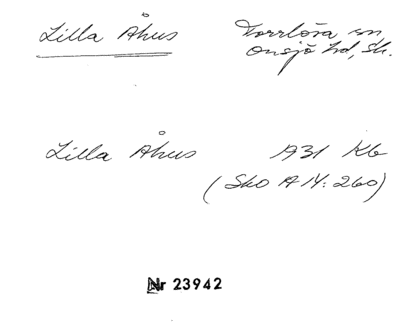 Lilla Åhus
Torrlösa sn
Onsjö hd, Sk.
Lilla Åhus 1931 Kb
(Sko A 14: 260)
Nr 23942